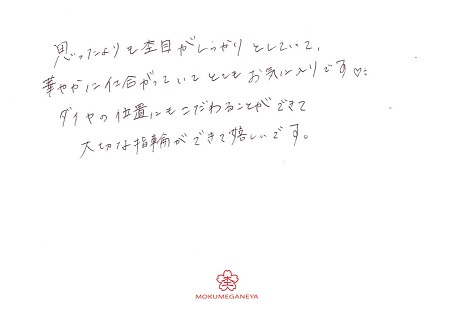 思ったよりも杢目がしっかりとしていて、
華やかに仕合がっていてとてもお気に入りです♡
ダイヤの位置にもこだわることができて
大切な指輪ができて嬉しいです。
杢
MOKUMEGANEYA